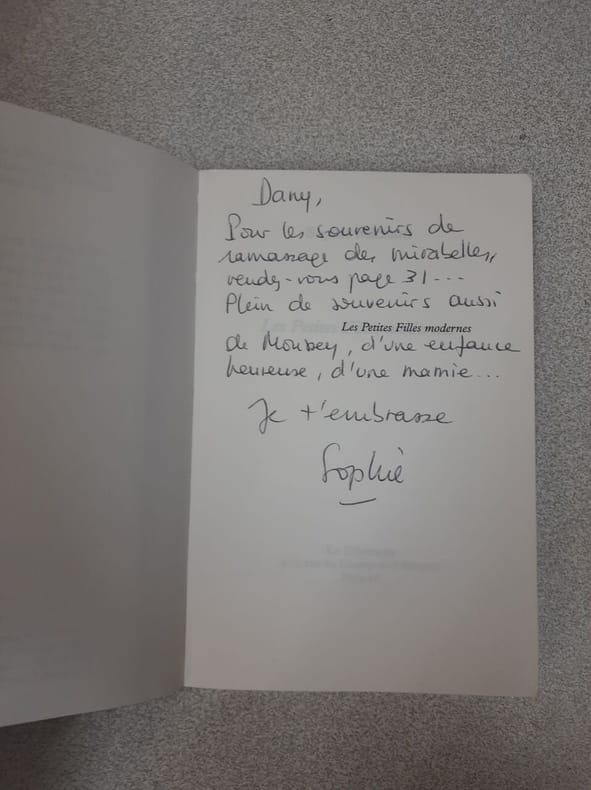 Dany,
Pour les souvenirs de
ramassage des mirabelles,
rendez-vous page 31...
Plein de souvenirs aussi
Les Petites Filles modernes
de Moussey, d'une enfance
heureuse, d'une mamie...
Je t'embrasse
Sophie